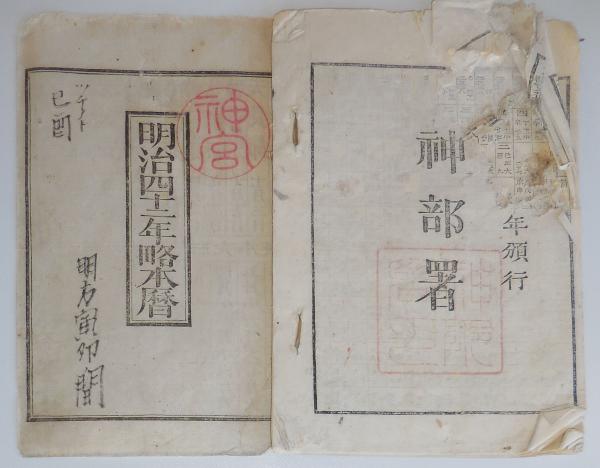 年頒行
神部署
神宮
明治四十二年略本暦
ツチノト
己酉
明方寅卯間